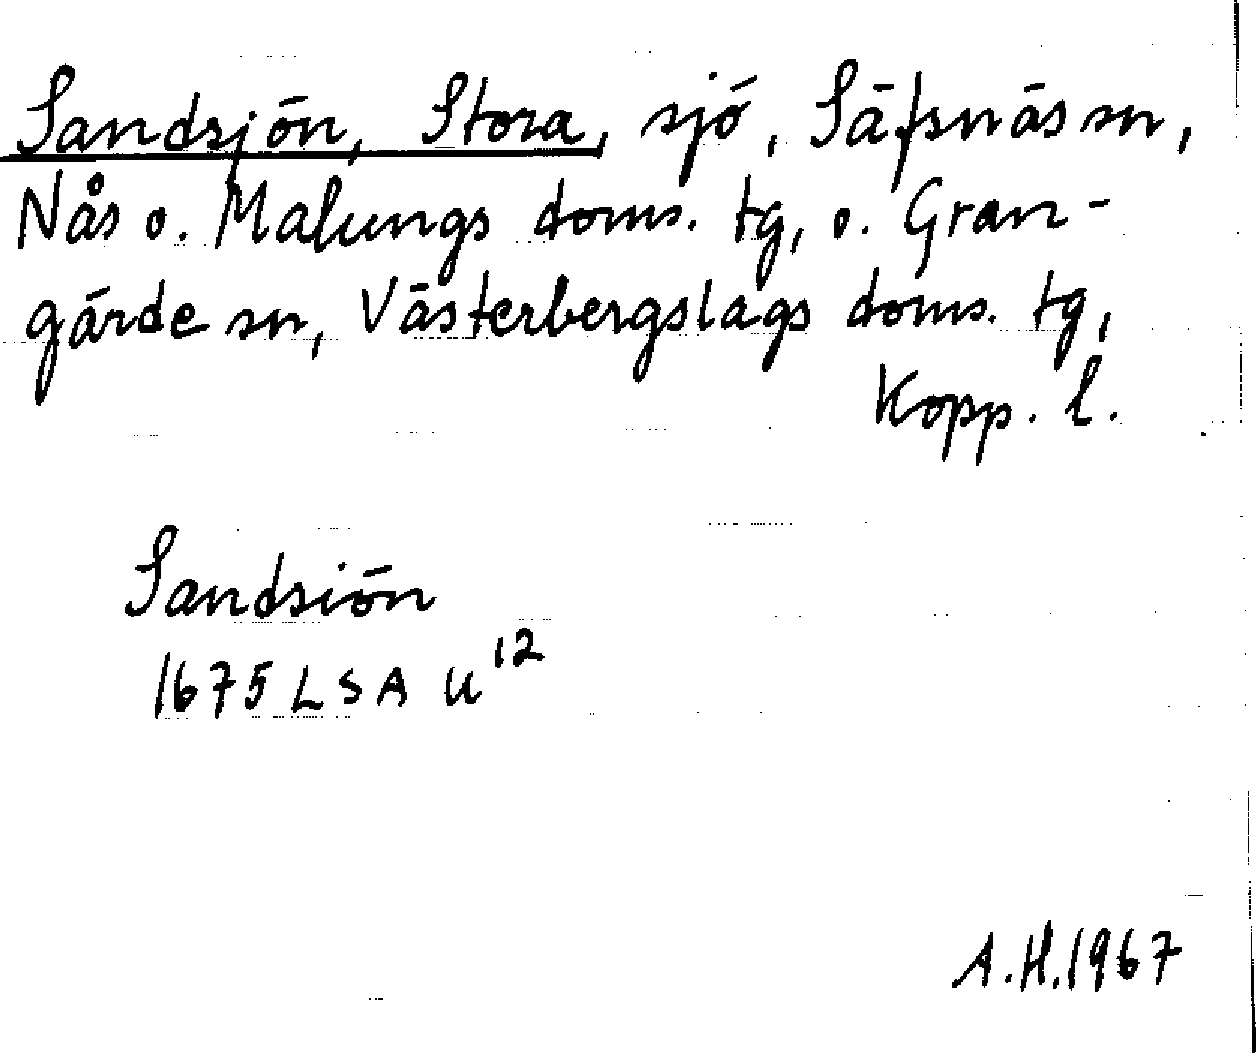 Sandsjön, Stora, sjö, Säfsnäs sn,
Nås o. Malungs doms. tg, o. Gran-
gärde sn, Västerbergslags doms. tg,
Kopp. l.
Sandsiön
1675 LSA U 12
A.H. 1967